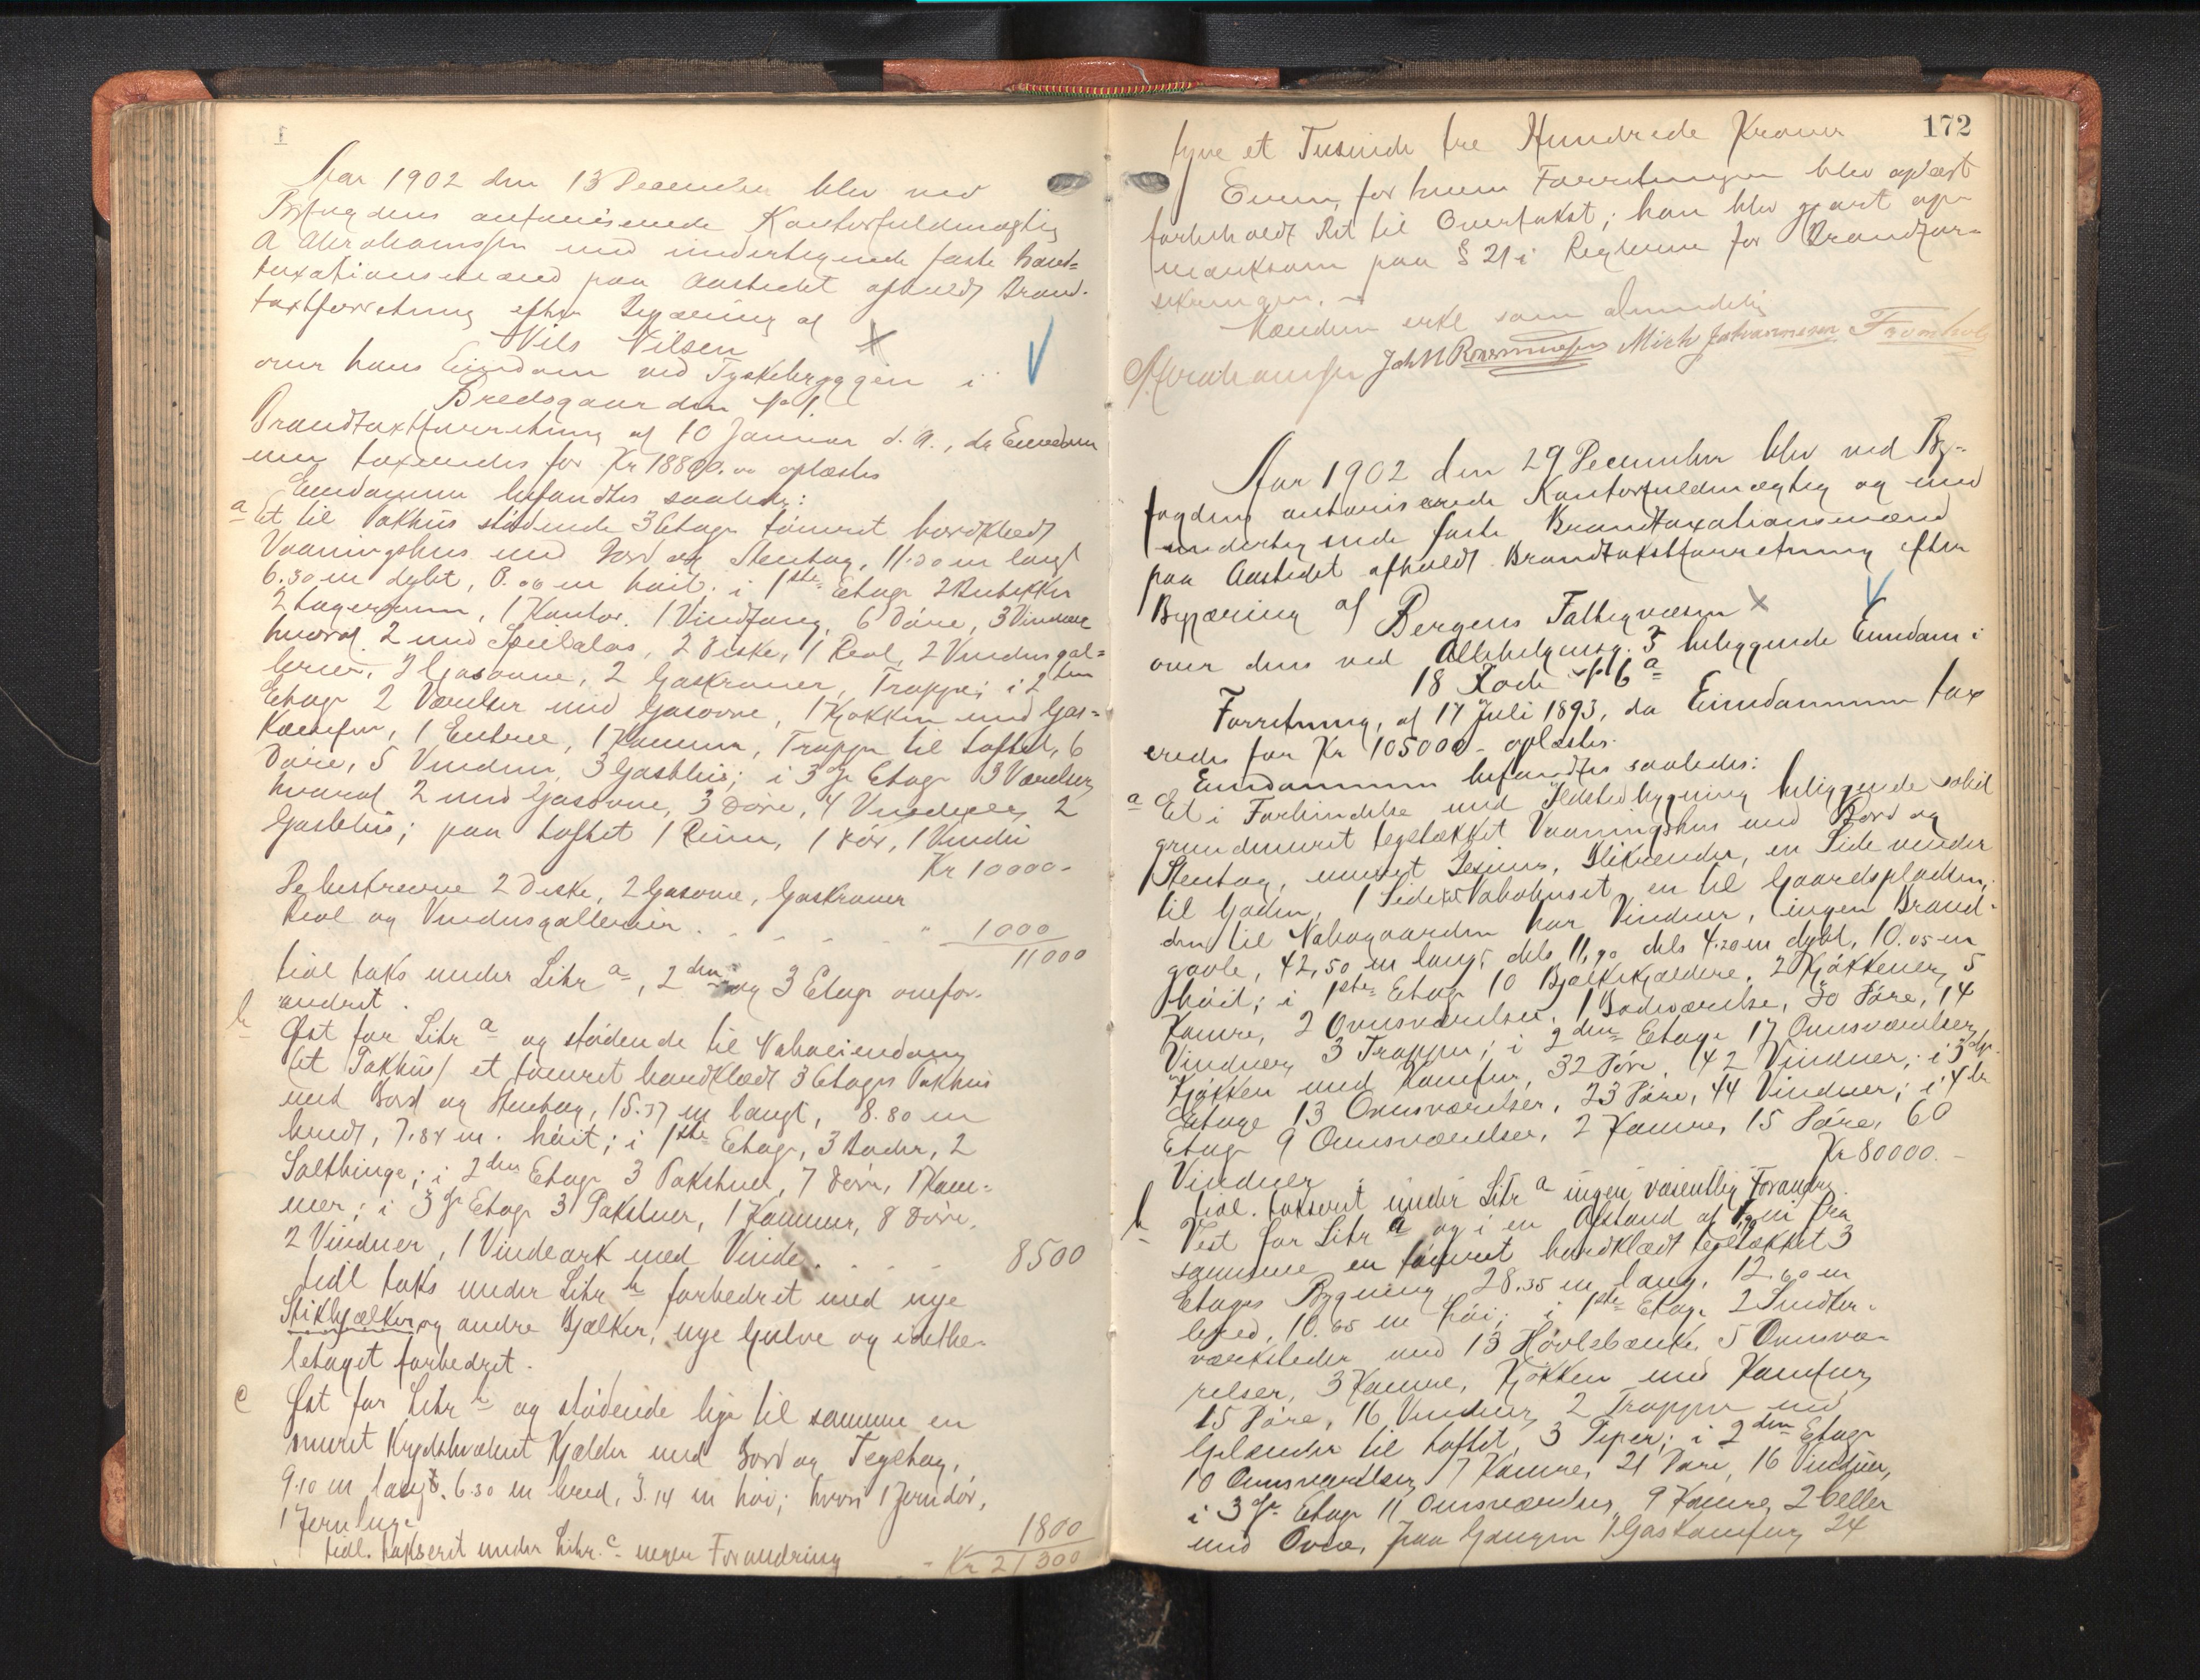 Aar 1902 den 13 December blev ved
Byfogdens autoriserede Kontorfuldmægtig
A Abrahamssen med undertegnede faste Brand-
taxationsmænd paa Aastedet afholdt Brand-
taxtforretning efter Begjæring af
Nils Nilsen
over hans Eiendom ved Tyskebryggen i
Bredsgaarden No 1.
Brandtaxtforretning af 10 Januar d. A., da Eiendom
men taxeredes for Kr 18800.00 oplæstes
Eiendommen befandtes saaledes:
a Et til Pakhus stødende 3 Etages tømret bordklædt
Vaaningshus med Bord og Stentag, 11.20 m langt
6.30 m dybt, 8.00 m høit; i 1ste Etage 2 Butikker
2 Lagerrum, 1 Kontor, 1 Vindfang, 6 Døre, 3 Vinduer
hvoraf 2 med Speilglas, 2 Diske, 1 Reol, 2 Vindusgal-
lerier, 2 Gasovne, 2 Gaskroner, Trappe; i 2den
Etage 2 Værelser med Gasovne, 1 Kjøkken med Gas-
komfur, 1 Entree, 1 Kammer, Trappe til Loftet, 6
Døre, 5 Vinduer, 3 Gasblus; i 3die Etage 3 Værelser
hvoraf 2 med Gasovne, 3 Døre, 4 Vinduer, 2
Gasblus; paa Loftet 1 Rum, 1 Dør, 1 Vindu
Kr 10000-
De beskrevne 2 Diske, 2 Gasovne, Gaskroner
Reol og Vindusgallerier . . . . . " 1000
11000
tidl taks under Litr a, 2den og 3 Etage uefor-
andret.
b Øst for Litr a og stødende til Naboeiendom
(et Pakhus) et tømret bordklædt 3 Etages Pakhus
med Bord og Stentag, 15.37 m langt, 8.80 m
bredt, 7.84 m. høit; i 1ste Etage, 3 Boder, 2
Saltbinge; i 2den Etage 3 Pakstuer, 7 Døre, 1 Kam-
mer; i 3die Etage 3 Pakstuer, 1 Kammer, 8 Døre,
2 Vinduer, 1 Vindeark med Vinde . . . 8500
tidl taks under Litr b forbedret med nye
Stikbjælker og andre Bjælker, nye Gulve og idethe-
letaget forbedret.
c Øst for Litr b og stødende lige til samme en
muret Krydshvælvet Kjælder med Bord og Tegltag,
9.10 m langt, 6.30 m bred, 3.14 m høi; hvori 1 Jerndør,
1 Jernluge 1800
tidl. takseret under Litr. c ingen Forandring - Kr 21300
172
tyve et Tusinde tre Hundrede Kroner
Eieren, for hvem Forretningen blev oplæst
forbeholdt Ret til Overtakst; han blev gjort op-
mærksom paa § 21 i Reglerne for Brandfor-
sikringen.
Mændene erkl som almindelig
A Abrahamssen Joh N Michs Johannessen
Aar 1902 den 29 December blev ved By-
fogdens autoriserede Kontorfuldmægtig og med
undertegnede faste Brandtaxationsmænd
paa Aastedet afholdt Brandtakstforretning efter
Begjæring af Bergens Fattigvæsen
over dens ved Allehelgensg. 3 beliggende Eiendom i
18 Rode No 6 a
Forretning, af 17 Juli 1893, da Eiendommen tax
eredes for Kr 105000- oplæstes.
Eiendommen befandtes saaledes:
a Et i Forbindelse med Ildstedbygning beliggende solid
grundmuret teglstækket Vaaningshus med Bord og
Stentag, muret Gesims, Blikrender, en Side vender
til Gaden, 1 Side til Nabohuset, en til Gaardspladsen;
den til Nabogaarden har Vinduer, ingen Brand-
gavle, 42,50 m langt, dels 11,90 dels 4.20 m dybt, 10.05 m
høit; i 1ste Etage 10 Bjælkekjældere, 2 Kjøkkener, 5
Kamre, 2 Ovnsværelser, 1 Badeværelse, 30 Døre, 14
Vinduer, 3 Trapper; i 2den Etage 17 Ovnsværelser,
Kjøkken med Komfur, 32 Døre, 42 Vinduer; i 3die
Etage 13 Ovnsværelser, 23 Døre, 44 Vinduer; i 4de
Etage 9 Ovnsværelser, 2 Kamre, 15 Døre, 60
Vinduer . Kr 80000.-
tidl. takseret under Litr a ingen væsentlig Forandr.
b Vest for Litr a og i en Afstand af m fra
samme en tømret bordklædt teglstækket 3
Etages Bygning, 28.35 m lang, 12.60 m
bred, 10.65 m høi; i 1ste Etage 2 Snedker-
værksteder med 13 Høvlebænke, 5 Ovnsvæ-
relser, 3 Kamre, Kjøkken med Komfur,
15 Døre, 16 Vinduer, 2 Trapper med
Gelænder til Loftet, 3 Piper; i 2den Etage
10 Ovnsværelser, 7 Kamre, 21 Døre, 16 Vinduer,
i 3die Etage 11 Ovnsværelser, 9 Kamre, 2 Celler
med Ovne, paa Gangen 1 Gaskomfur, 24